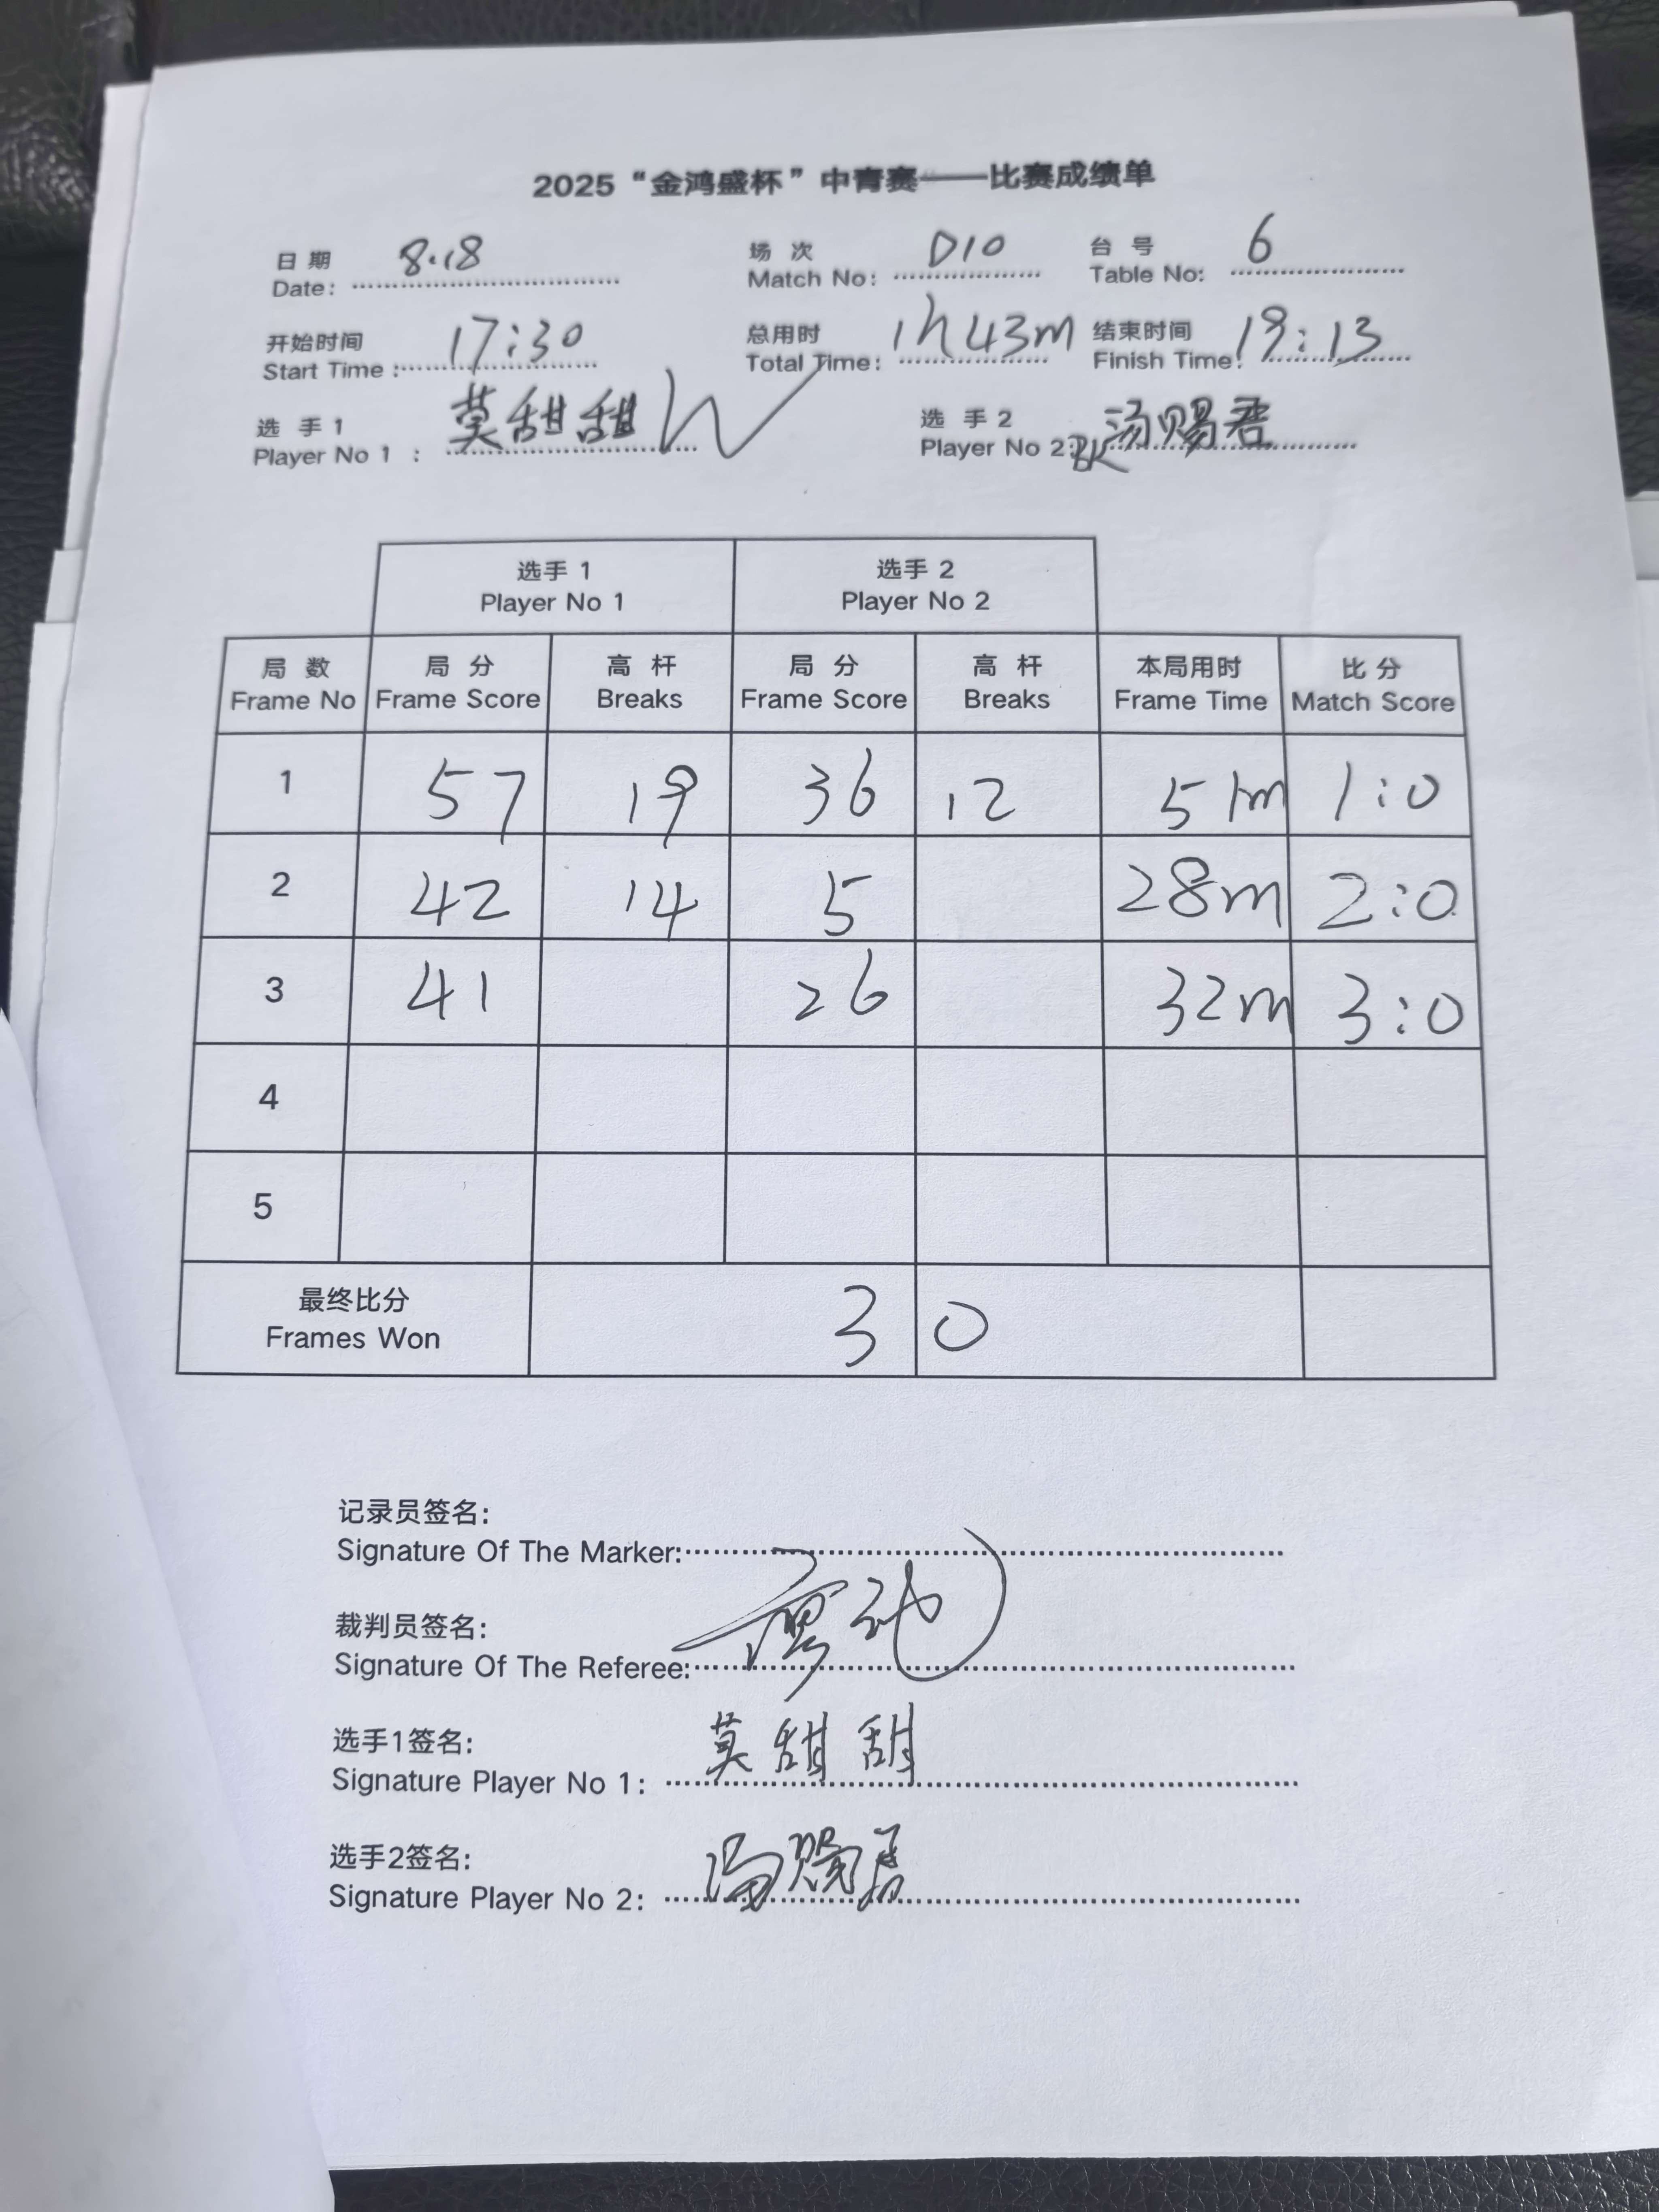 2025“金鸿盛杯”中青赛——比赛成绩单
日期 8.18 场次 D10 台号 6
Date: Match No: Table No:
开始时间 17:30 总用时 1h43m 结束时间 19:13
Start Time: Total Time: Finish Time:
选手1 莫甜甜 W 选手2 汤赐君
Player No 1 : Player No 2: BK
选手 1 选手 2
Player No 1 Player No 2
局数 局分 高杆 局分 高杆 本局用时 比分
Frame No Frame Score Breaks Frame Score Breaks Frame Time Match Score
1 57 19 36 12 51m 1:0
2 42 14 5 28m 2:0
3 41 26 32m 3:0
4
5
最终比分 3 0
Frames Won
记录员签名:
Signature Of The Marker:
裁判员签名:
Signature Of The Referee:
选手1签名: 莫甜甜
Signature Player No 1:
选手2签名: 汤赐君
Signature Player No 2: